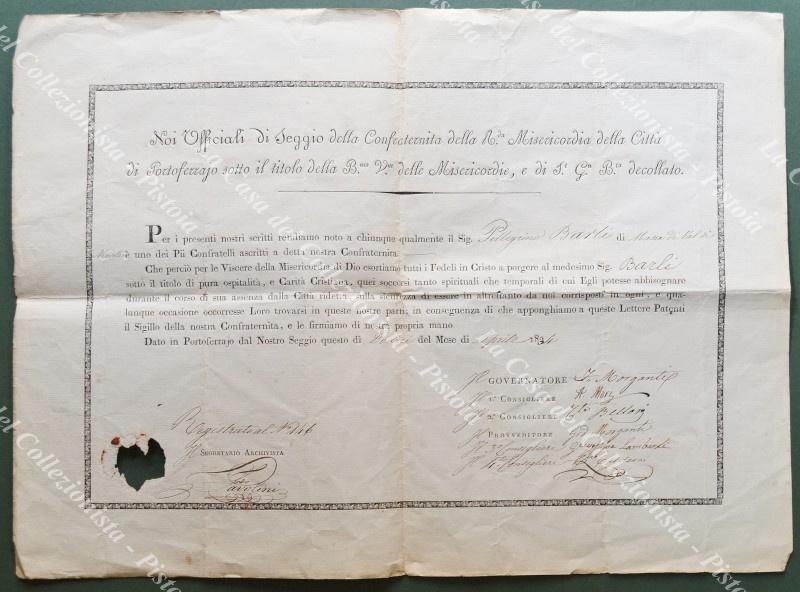 Noi Ufficiali di Seggio della Confraternita della R.da Misericordia della Città
di Portoferrajo sotto il titolo della B.ma V.ne delle Misericordie, e di S.t G.n B.ta decollato.
Per i presenti nostri scritti rendiamo noto a chiunque qualmente il Sig. Pellegrino Barli di Massa di Val di
è uno dei Pii Confratelli ascritti a detta nostra Confraternita
Che perciò per le Viscere della Misericordia di Dio esortiamo tutti i Fedeli in Cristo a porgere al medesimo Sig. Barli
sotto il titolo di pura ospitalità, e Carità Cristiana, quei soccorsi tanto spirituali che temporali di cui Egli potesse abbisognare
durante il corso di sua assenza dalla Città ridetta, sulla sicurezza di essere in altrettanto da noi corrisposti in ogni, e qua-
lunque occasione occorresse Loro trovarsi in queste nostre parti; in conseguenza di che apponghiamo a queste Lettere Patenti
il Sigillo della nostra Confraternita, e le firmiamo di nostra propria mano
Dato in Portoferrajo dal Nostro Seggio questo di Dodici del Mese di Aprile 1834
Il GOVERNATORE Morganti
Il 1.º CONSIGLIERE
Il 2.º CONSIGLIERE Bellari
Il PROVVEDITORE Morganti
Il 3.º Consigliere Giuseppe Lambardi
Il 4.º Consigliere
Registrato al N.º 146
Il SEGRETARIO ARCHIVISTA
Tavolini
La Casa del Collezionista - Pistoia